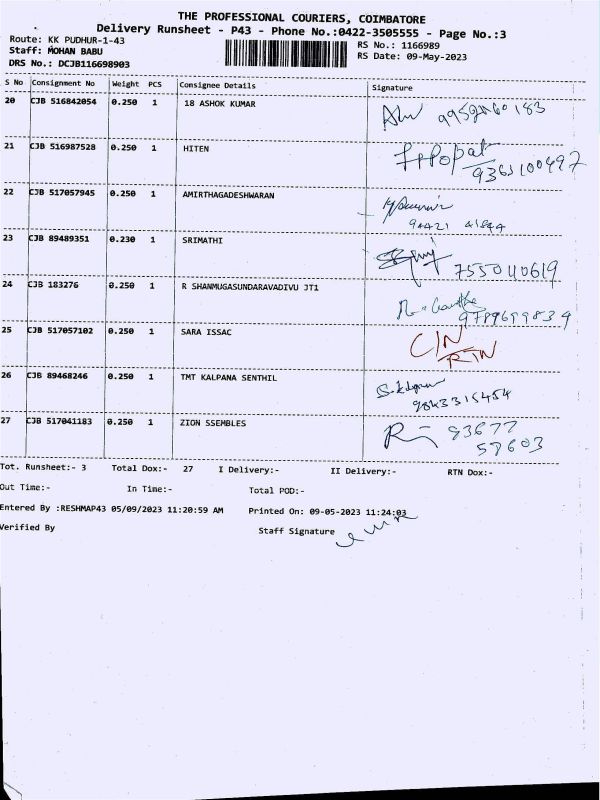 THE PROFESSIONAL COURIERS, COIMBATORE
Delivery Runsheet - P43 - Phone No.:0422-3505555 - Page No.:3
Route: KK PUDHUR-1-43 RS No.: 1166989
Staff: MOHAN BABU RS Date: 09-May-2023
DRS No.: DCJB116698903
S No Consignment No Weight PCS Consignee Details Signature
20 CJB 516842054 0.250 1 18 ASHOK KUMAR
21 CJB 516987528 0.250 1 HITEN
9361100497
22 CJB 517057945 0.250 1 AMIRTHAGADESHWARAN
23 CJB 89489351 0.230 1 SRIMATHI
7550110619
24 CJB 183276 0.250 1 R SHANMUGASUNDARAVADIVU JT1
9789699834
25 CJB 517057102 0.250 1 SARA ISSAC C/N
RTN
26 CJB 89468246 0.250 1 TMT KALPANA SENTHIL
9843315454
27 CJB 517041183 0.250 1 ZION SSEMBLES 93677
57603
Tot. Runsheet:- 3 Total Dox:- 27 I Delivery:- II Delivery:- RTN Dox:-
Out Time:- In Time:- Total POD:-
Entered By :RESHMAP43 05/09/2023 11:20:59 AM Printed On: 09-05-2023 11:24:03
Verified By Staff Signature